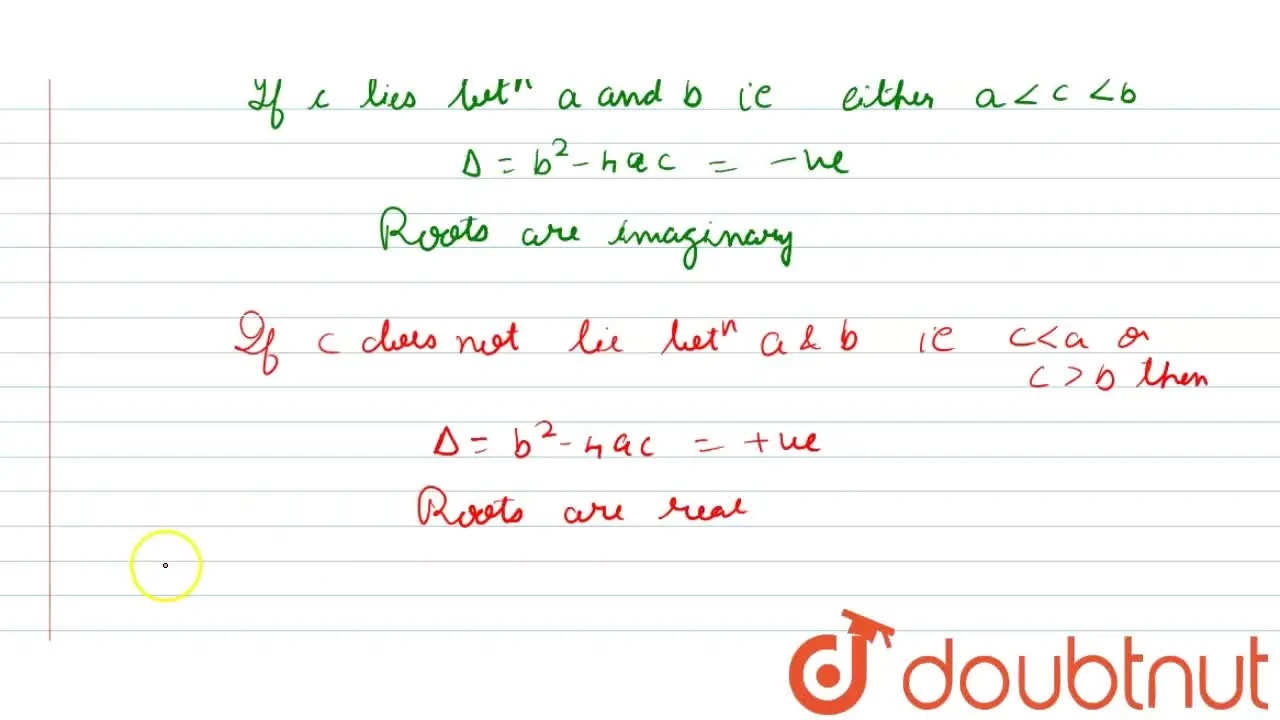 If c lies betⁿ a and b ie either a < c < b
Δ = b² - 4ac = -ve
Roots are imaginary
If c does not lie betⁿ a & b ie c < a or
c > b then
Δ = b² - 4ac = +ve
Roots are real
doubtnut